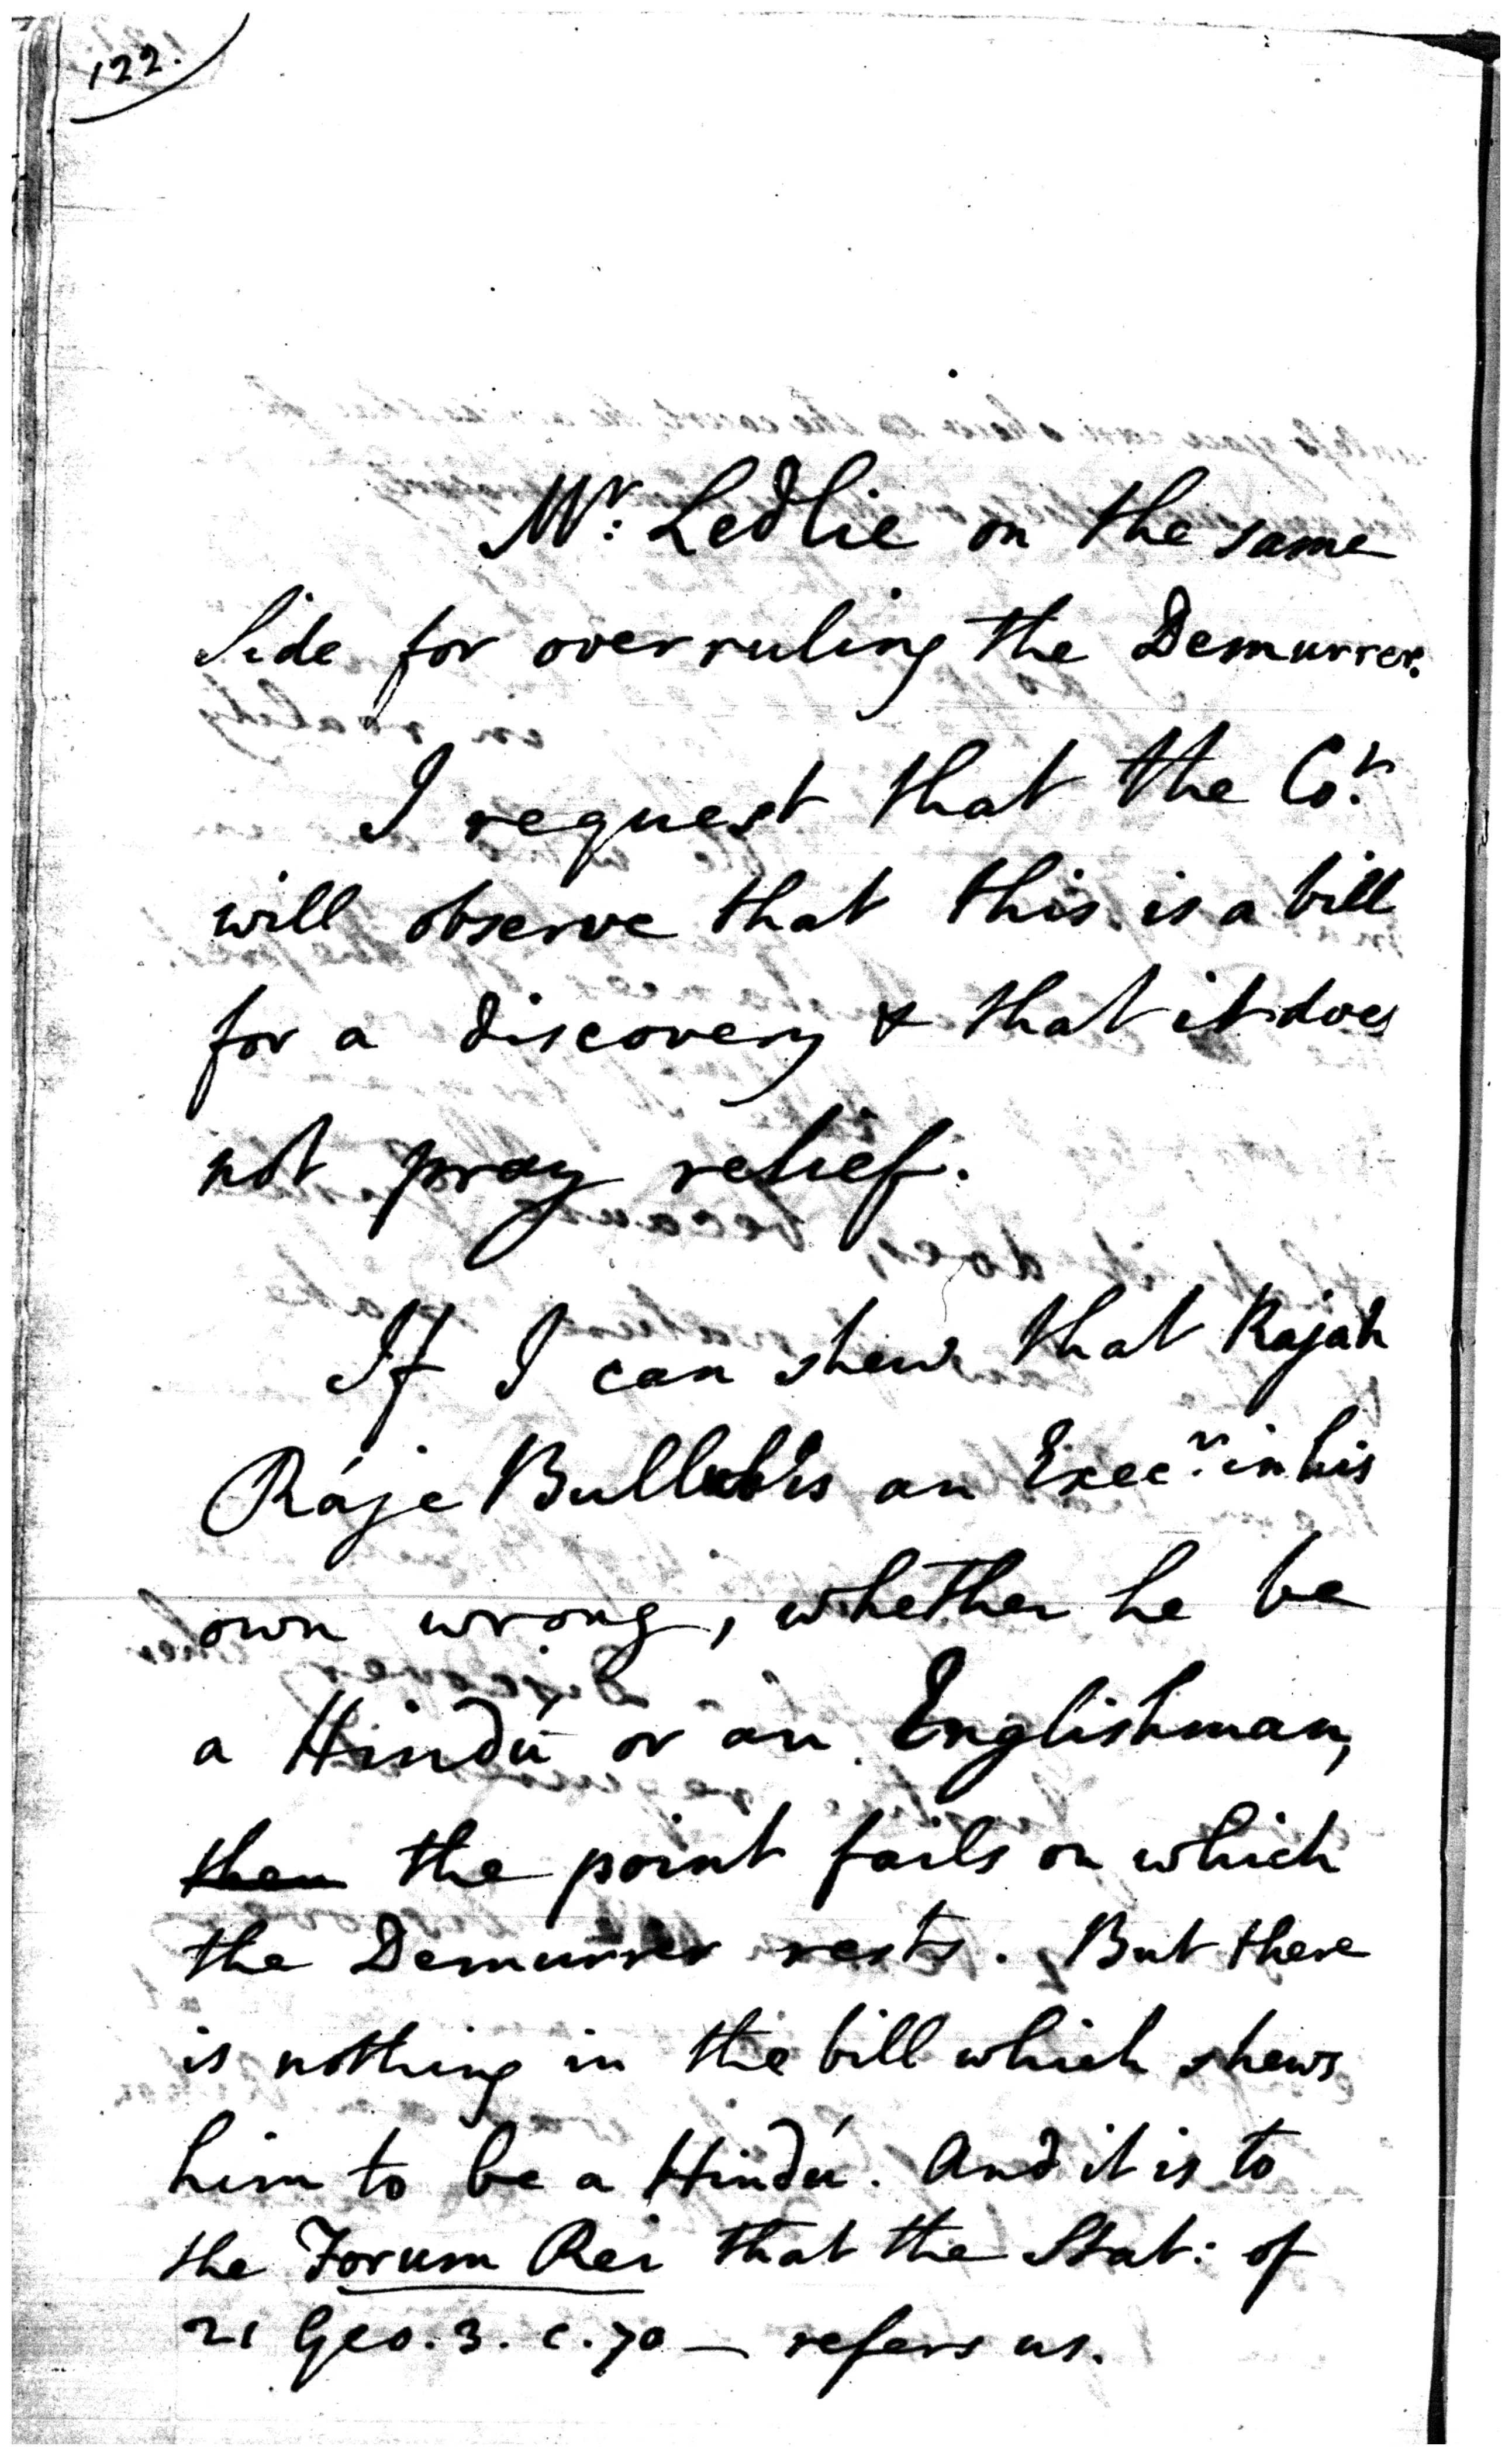 122.
Mr: Ledlie on the same
Side for overruling the Demurrer.
I request that the Cot.
will observe that this is a bill
for a discovery & that it does
not pray relief.
If I can shew that Rajah
Ráje Bullub is an Execr. in his
own wrong, whether he be
a Hindú or an Englishman,
then the point fails on which
the Demurrer rests. But there
is nothing in the bill which shews
him to be a Hindú. And it is to
the Forum Rei that the Stat: of
21 Geo. 3. c. 70 — refers us.